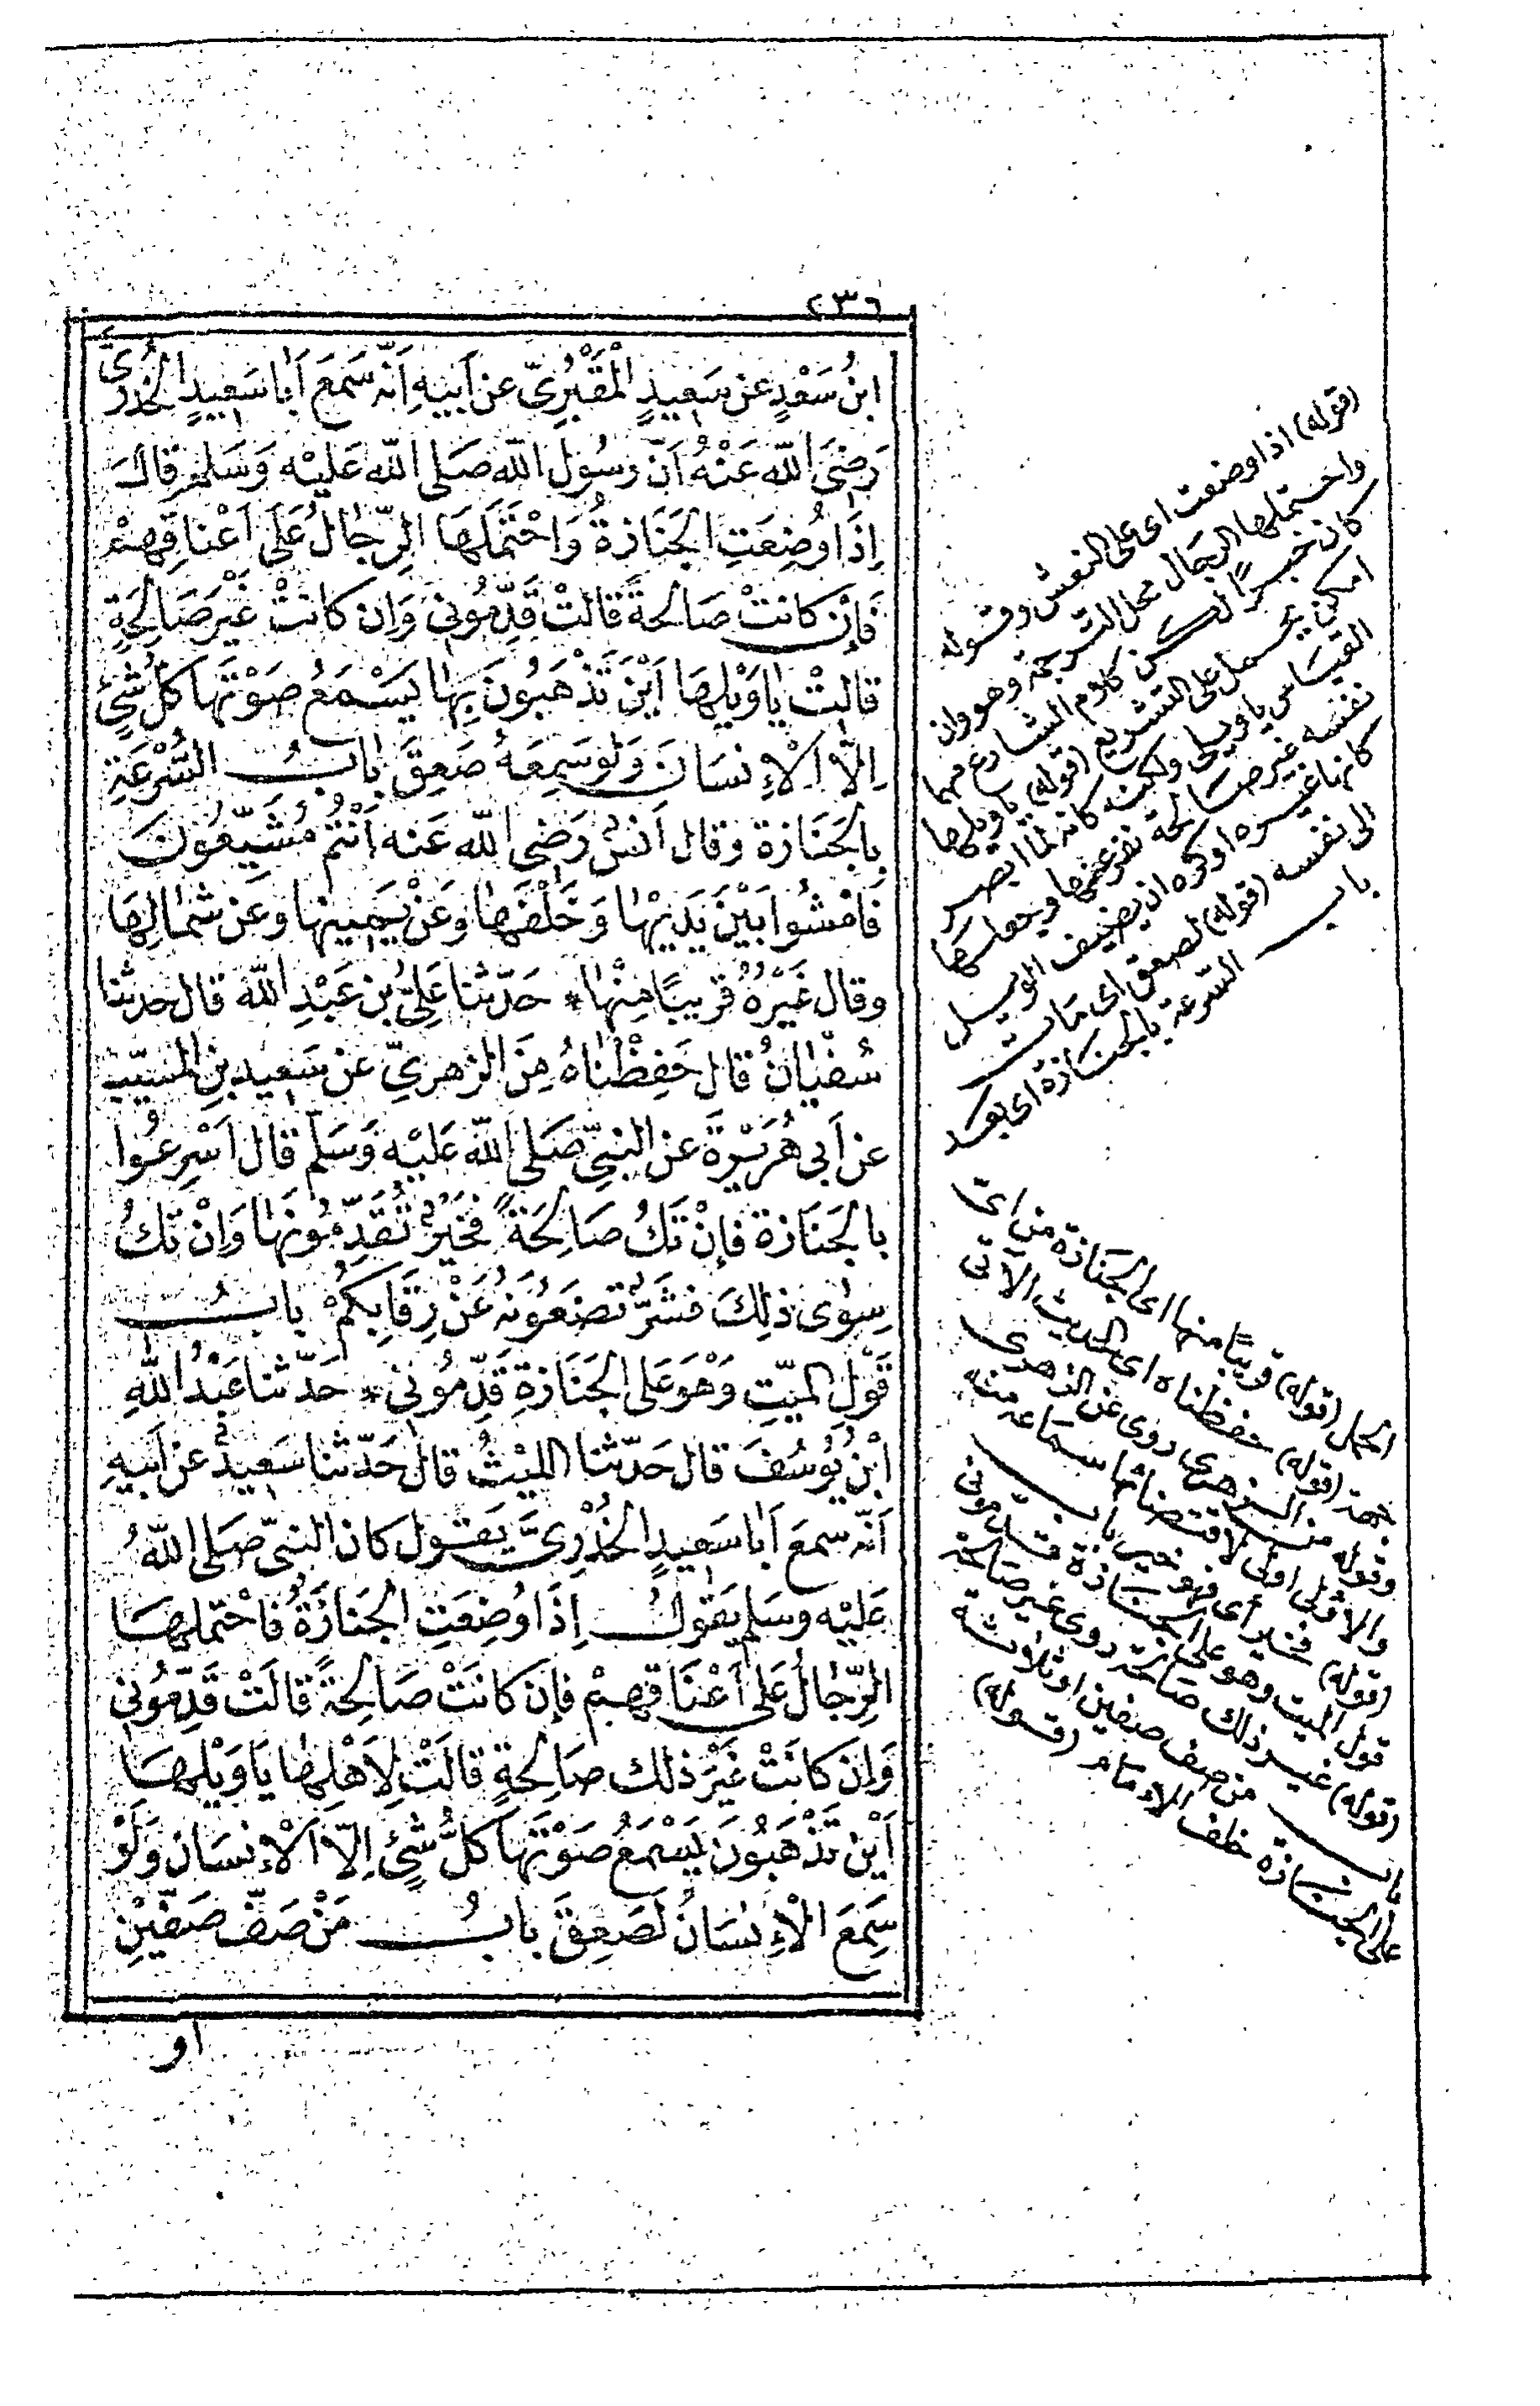 ٢٣٦
ابنُ سَعْدٍ عن سَعِيدٍ الْمَقْبُرِىِّ عن اَبيهِ اَنَّه سَمَعَ اَبا سَعِيدٍ الخُدْرِىَّ
رَضِىَ اللّٰه عَنْهُ اَنّ رسُول اللّٰه صَلى اللّٰه عَليْه وَسَلم قالَ
اِذَا وُضِعَتِ الجَنَازةُ وَاحْتَمَلَهَا الرِّجالُ عَلَى اَعْناقِهِمْ
فَاِنْ كانَتْ صَالحةً قالتْ قَدِّمُونى وَاِن كانَتْ غَيْرَ صَالحَةٍ
قالتْ يا وَيْلهَا اَيْنَ تَذْهَبُونَ بِهَا يَسْمَعُ صَوْتَها كلُّ شَئٍ
اِلّا الْاِنسَانَ وَلَوْ سَمِعَهُ صَعِقَ بابُ السُّرْعَةِ
بالجَنَازة وقال اَنسٌ رَضى اللّٰه عَنه اَنْتُمْ مُشَيِّعُونَ
فَامْشُوا بَيْنَ يَدَيْهَا وَخَلْفَهَا وعَنْ يَمِينِهَا وعَن شِمَالِهَا
وقال غَيْرُهُ قَريبًا مِنْهَا * حَدّثنا عَلِىُّ بن عَبْدِ اللّٰه قال حدثنا
سُفْيانُ قال حَفِظْناهُ مِنَ الزهرىِّ عن سَعِيدِ بنِ المسَيِّبِ
عن اَبى هُرَيْرةَ عن النبىِّ صَلى اللّٰه عَليْه وَسَلم قال اَسْرِعُوا
بالجَنَازة فاِنْ تَكُ صَالِحَةً فَخَيْرٌ تُقَدِّمُونهَا وَاِنْ تَكُ
سِوٰى ذٰلِكَ فشَرٌّ تضَعُونَهُ عَنْ رِقَابِكُمْ بابُ
قَوْلِ الميّتِ وَهْوَ عَلى الجَنَازةِ قَدِّمُونى * حَدّثنا عَبْدُ اللّٰهِ
ابْن يُوسُفَ قال حَدّثنا الليْثُ قال حَدّثنا سَعِيدٌ عن اَبيهِ
اَنّه سمعَ اَبا سَعِيدٍ الخُدْرِىَّ يَقول كان النبىّ صَلى اللّٰهُ
عَليْه وسَلم يَقولُ اِذَا وُضِعَتِ الجَنازَةُ فَاحْتَملهَا
الرِّجالُ عَلَى اَعْنَاقهِمْ فاِن كانَتْ صَالحةً قالَتْ قَدِّمُونى
وَاِن كانَتْ غَيْرَ ذٰلك صَالحةٍ قالَتْ لاَهْلِهَا يَا وَيْلهَا
اَيْن تَذْهَبُونَ يَسْمَعُ صَوْتَهَا كلُّ شَئٍ اِلّا الْاِنسَانَ وَلَوْ
سَمِعَ الْاِنسَانُ لَصَعِقَ بابُ مَنْ صَفّ صَفّيْنِ
او
(قوله) اذا وضعت اى على النعش وقوله
واحتملها الرجال محل الترجمة وهو وان
كان خبرًا لكن كلام الشارع مهما
امكن يحمل على التشريع (قوله) يا ويلها
القياس يا ويلى ولكنه كانه لما ابصر
نفسه غير صالحة نفر عنها وجعلها
كانها غيره او كره ان يضيف الويل
الى نفسه (قوله) لصعق اى مات
باب السرعة بالجنازة اى بعد
الحمل (قوله) قريبًا منها اى الجنازة من اىّ
جهة (قوله) حفظناه اى الحديث الآتى
وقوله من الزهرى روى عن الزهرى
والاوّل اولى لاقتضائها سماعه منه
(قوله) فخير أى فهو خير باب
قول الميت وهو على الجنازة قدّمونى
(قوله) غير ذلك صالحة روى غير صالحة
باب من صف صفين او ثلاثة
على الجنازة خلف الامام (قوله)